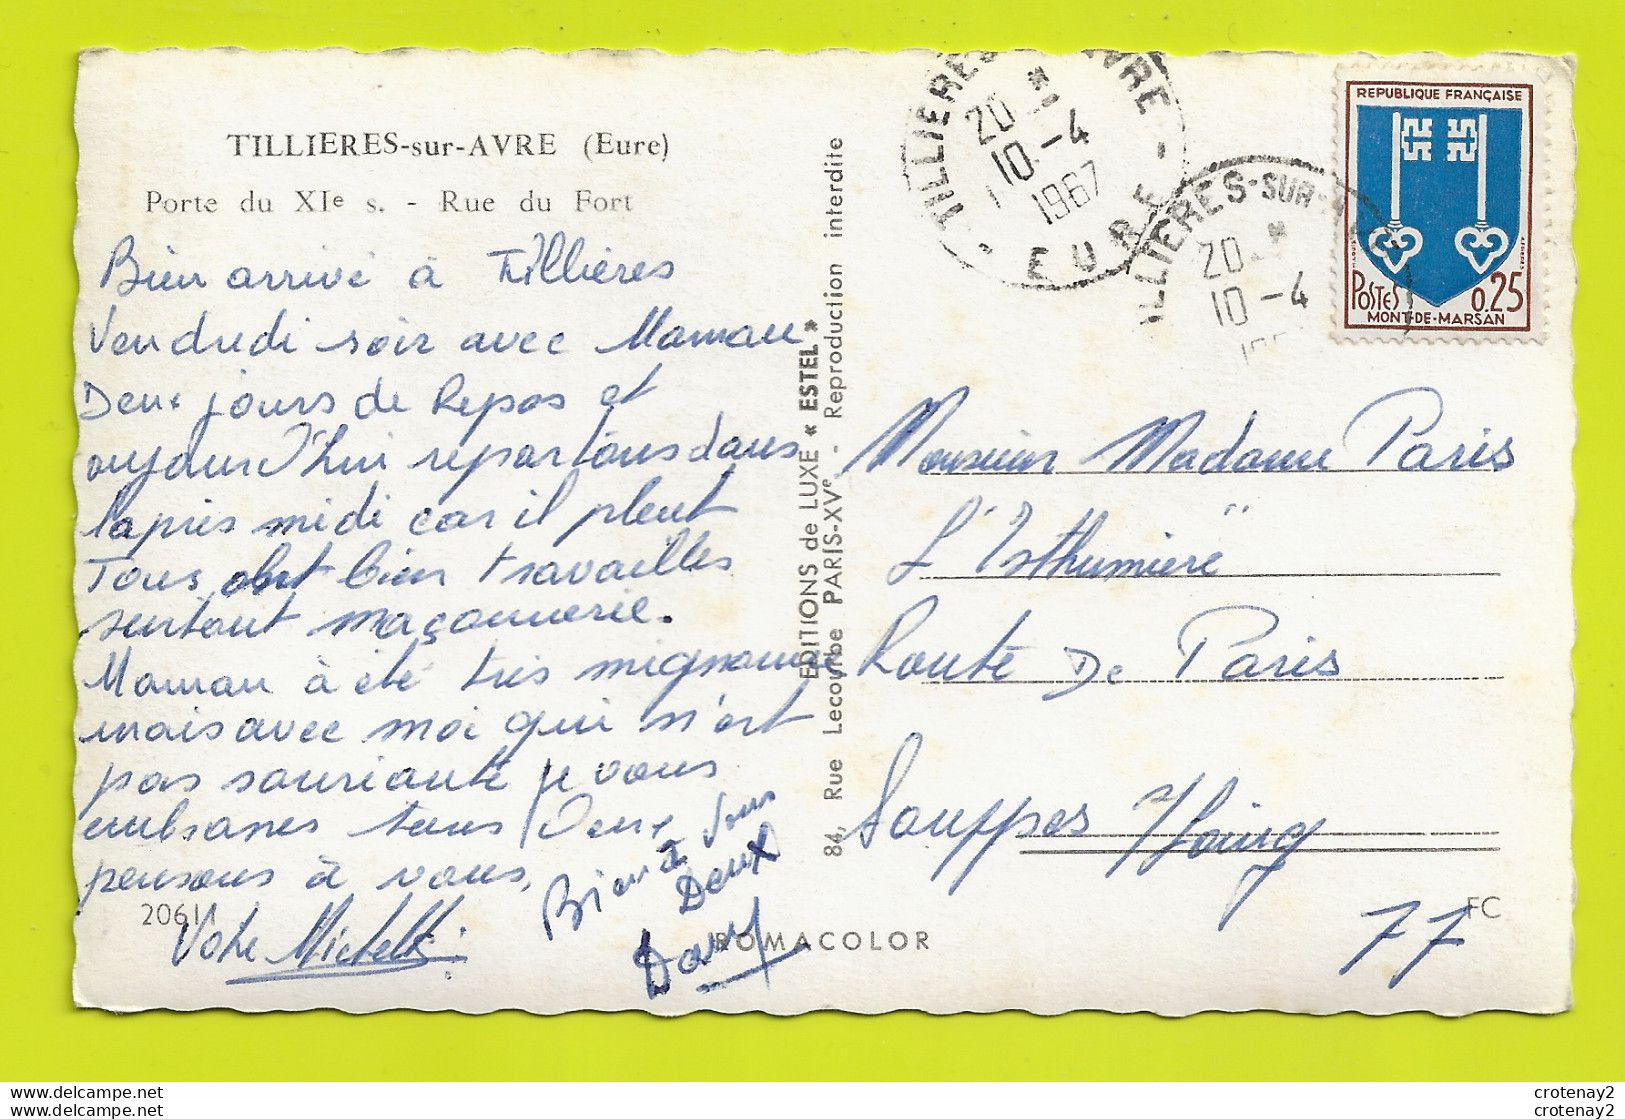 TILLIERES-sur-AVRE (Eure)
Porte du XIe s. - Rue du Fort
Bien arrivé à Tillières
Vendredi soir avec Maman
Deux jours de Repos et
aujourd'hui repartons dans
l'après midi car il pleut
Tous ont bien travaillés
surtout maçonnerie.
Maman à été très mignonne
mais avec moi qui n'est
pas souriante je vous
embrasses tous Deux
pensons à vous.
Votre Michelle
Bien à Vous
Deux
Dany
20611
ROMACOLOR
FC
EDITIONS de LUXE « ESTEL »
84, Rue Lecourbe PARIS-XVe - Reproduction interdite
TILLIERES AVRE
20 *
10 -4
1967
EURE
LLIERES-SUR-A
20 *
10 -4
REPUBLIQUE FRANÇAISE
POSTES 0,25
MONT-DE-MARSAN
Monsieur Madame Paris
L'Isthumière"
Route De Paris
Souppes /Loing
77
crotenay2
crotenay2